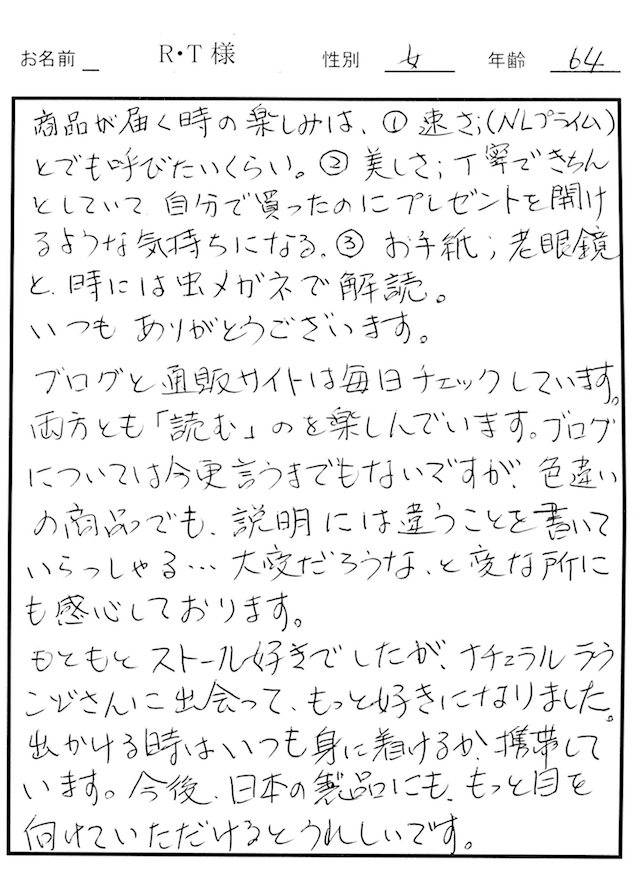 お名前 R・T 様 性別 女 年齢 64
商品が届く時の楽しみは、① 速さ;(NLプライム)
とでも呼びたいくらい。② 美しさ;丁寧できちん
としていて 自分で買ったのにプレゼントを開け
るような気持ちになる。③ お手紙;老眼鏡
と、時には虫メガネで解読。
いつも ありがとうございます。
ブログと通販サイトは毎日チェックしています。
両方とも「読む」のを楽しんでいます。ブログ
については今更言うまでもないですが、色違い
の商品でも、説明には違うことを書いて
いらっしゃる… 大変だろうな、と変な所に
も感心しております。
もともと ストール好きでしたが、ナチュラル ラウ
ンジさんに出会って、もっと好きになりました。
出かける時はいつも身に着けるか、携帯して
います。今後、日本の製品にも、もっと目を
向けていただけるとうれしいです。